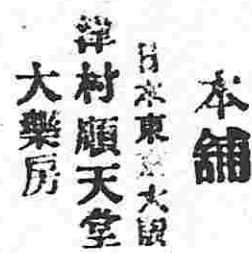 本舖
日本東京大阪
津村順天堂
大藥房